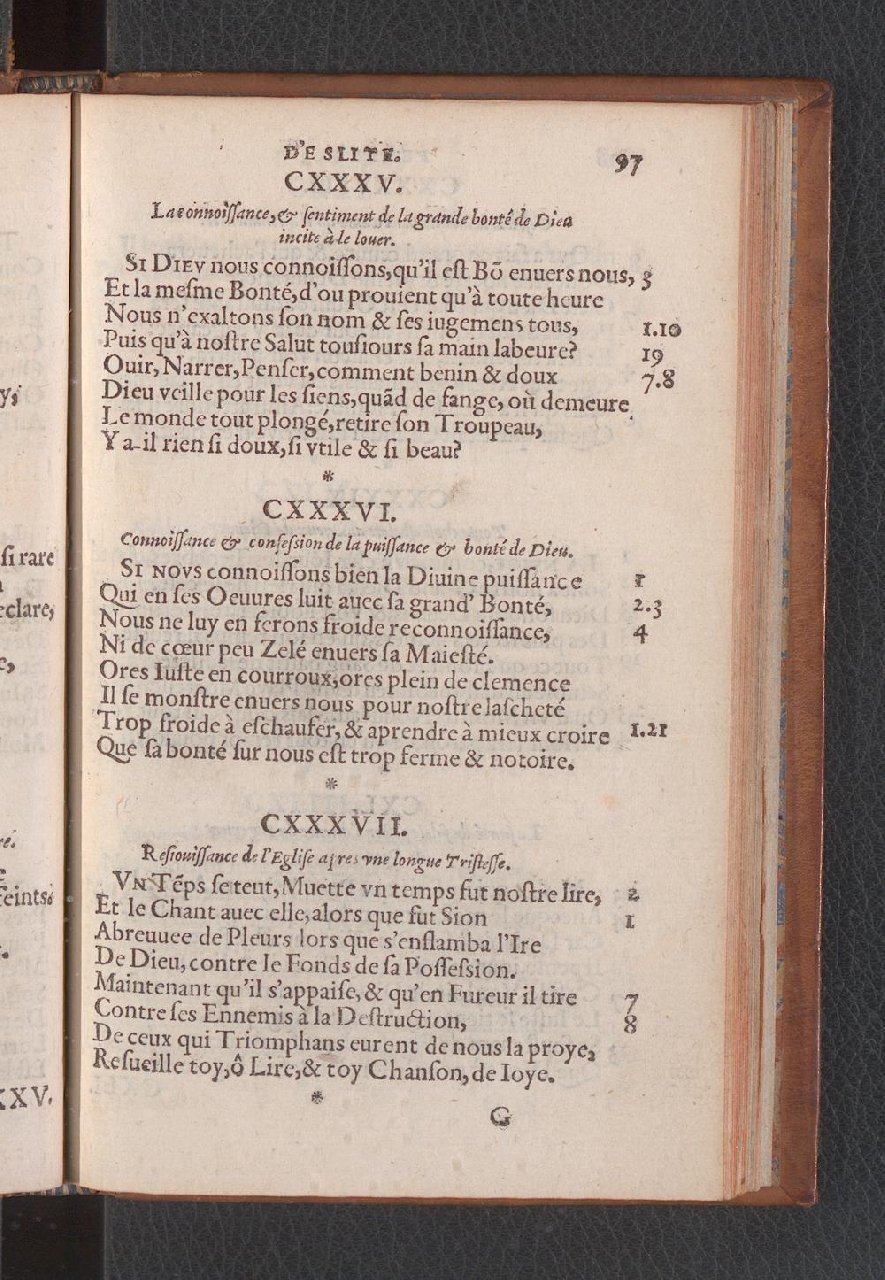 D'ESLITE. 97
CXXXV.
La connoiſſance, & ſentiment de la grande bonté de Dieu
incite à le louer.
SI DIEV nous connoiſſons, qu'il eſt Bõ enuers nous, 3
Et la meſme Bonté, d'ou prouient qu'à toute heure
Nous n'exaltons ſon nom & ſes iugemens tous, 1.10
Puis qu'à noſtre Salut touſiours ſa main labeure? 19
Ouir, Narrer, Penſer, comment benin & doux 7.8
Dieu veille pour les ſiens, quãd de fange, où demeure
Le monde tout plongé, retire ſon Troupeau,
Y a-il rien ſi doux, ſi vtile & ſi beau?
*
CXXXVI.
Connoiſſance & confeſsion de la puiſſance & bonté de Dieu.
SI NOVS connoiſſons bien la Diuine puiſſance 1
Qui en ſes Oeuures luit auec ſa grand' Bonté, 2.3
Nous ne luy en ferons froide reconnoiſſance, 4
Ni de cœur peu Zelé enuers ſa Maieſté.
Ores Iuſte en courroux, ores plein de clemence
Il ſe monſtre enuers nous pour noſtre laſcheté
Trop froide à eſchaufer, & aprendre à mieux croire 1.21
Que ſa bonté ſur nous eſt trop ferme & notoire.
*
CXXXVII.
Reſiouiſſance de l'Egliſe apres vne longue Triſteſſe.
VN Tẽps ſe teut, Muette vn temps fut noſtre lire, 2
Et le Chant auec elle, alors que fut Sion 1
Abreuuee de Pleurs lors que s'enflamba l'Ire
De Dieu, contre le Fonds de ſa Poſſeſsion.
Maintenant qu'il s'appaiſe, & qu'en Fureur il tire 7
Contre ſes Ennemis à la Deſtruction, 8
De ceux qui Triomphans eurent de nous la proye,
Reſueille toy, ô Lire, & toy Chanſon, de Ioye.
*
G
y;
ſi rare
eclare,
e,
feints.
XXV.